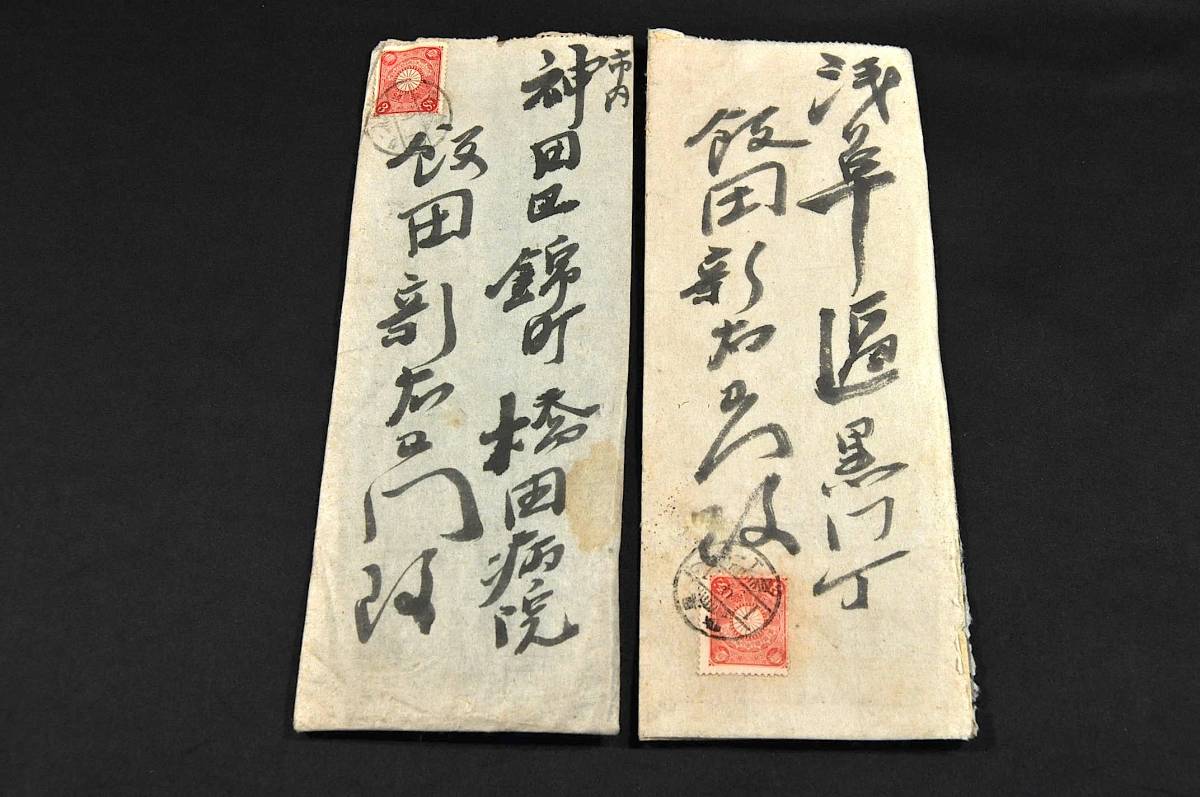 浅草區黒門丁
飯田新右エ門殿
市内
神田区錦町橋田病院
飯田新右エ門殿